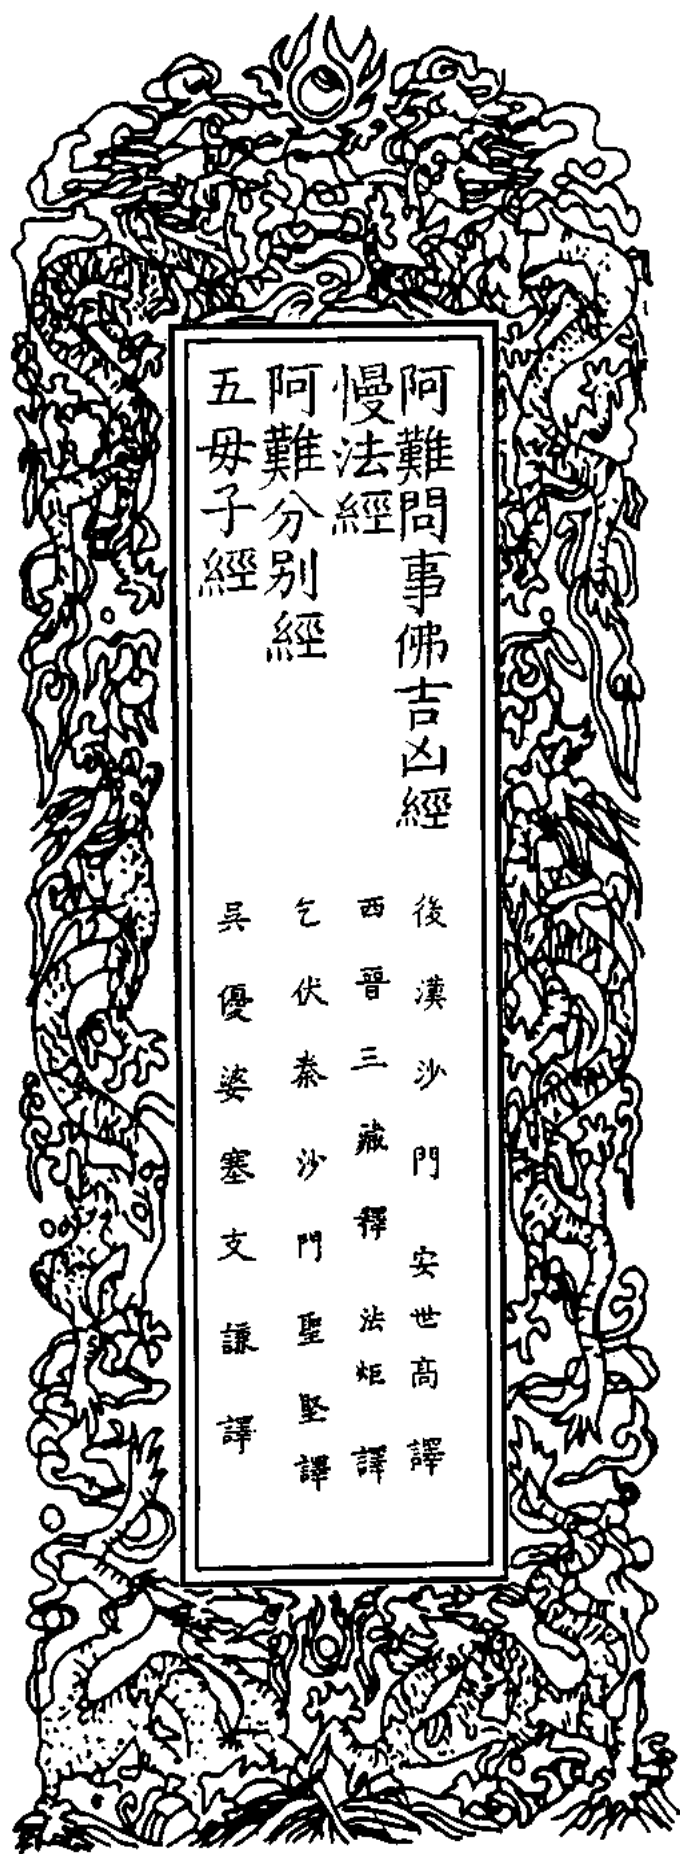 阿難問事佛吉凶經 後漢沙門 安世高 譯
慢法經 西晉三藏釋 法炬 譯
阿難分别經 乞伏秦沙門聖堅譯
五母子經 吳優婆塞支 謙 譯